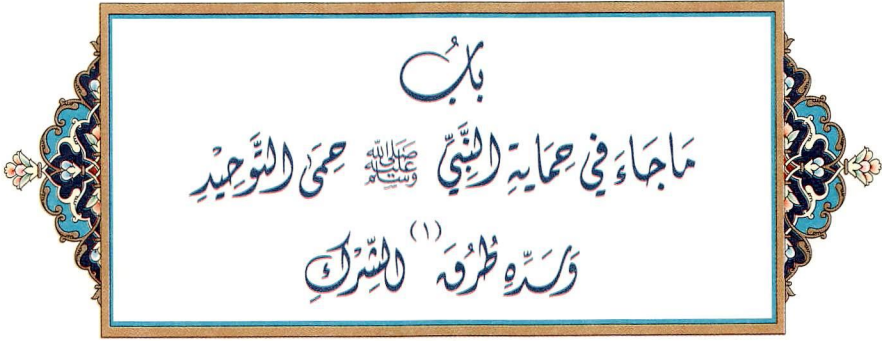 بَابُ
مَا جَاءَ في حِمَايَةِ النَّبِيِّ ﷺ حِمَى التَّوحِيْدِ
وَسَدِّهِ طُرُقَ (١) الشِّرْكِ